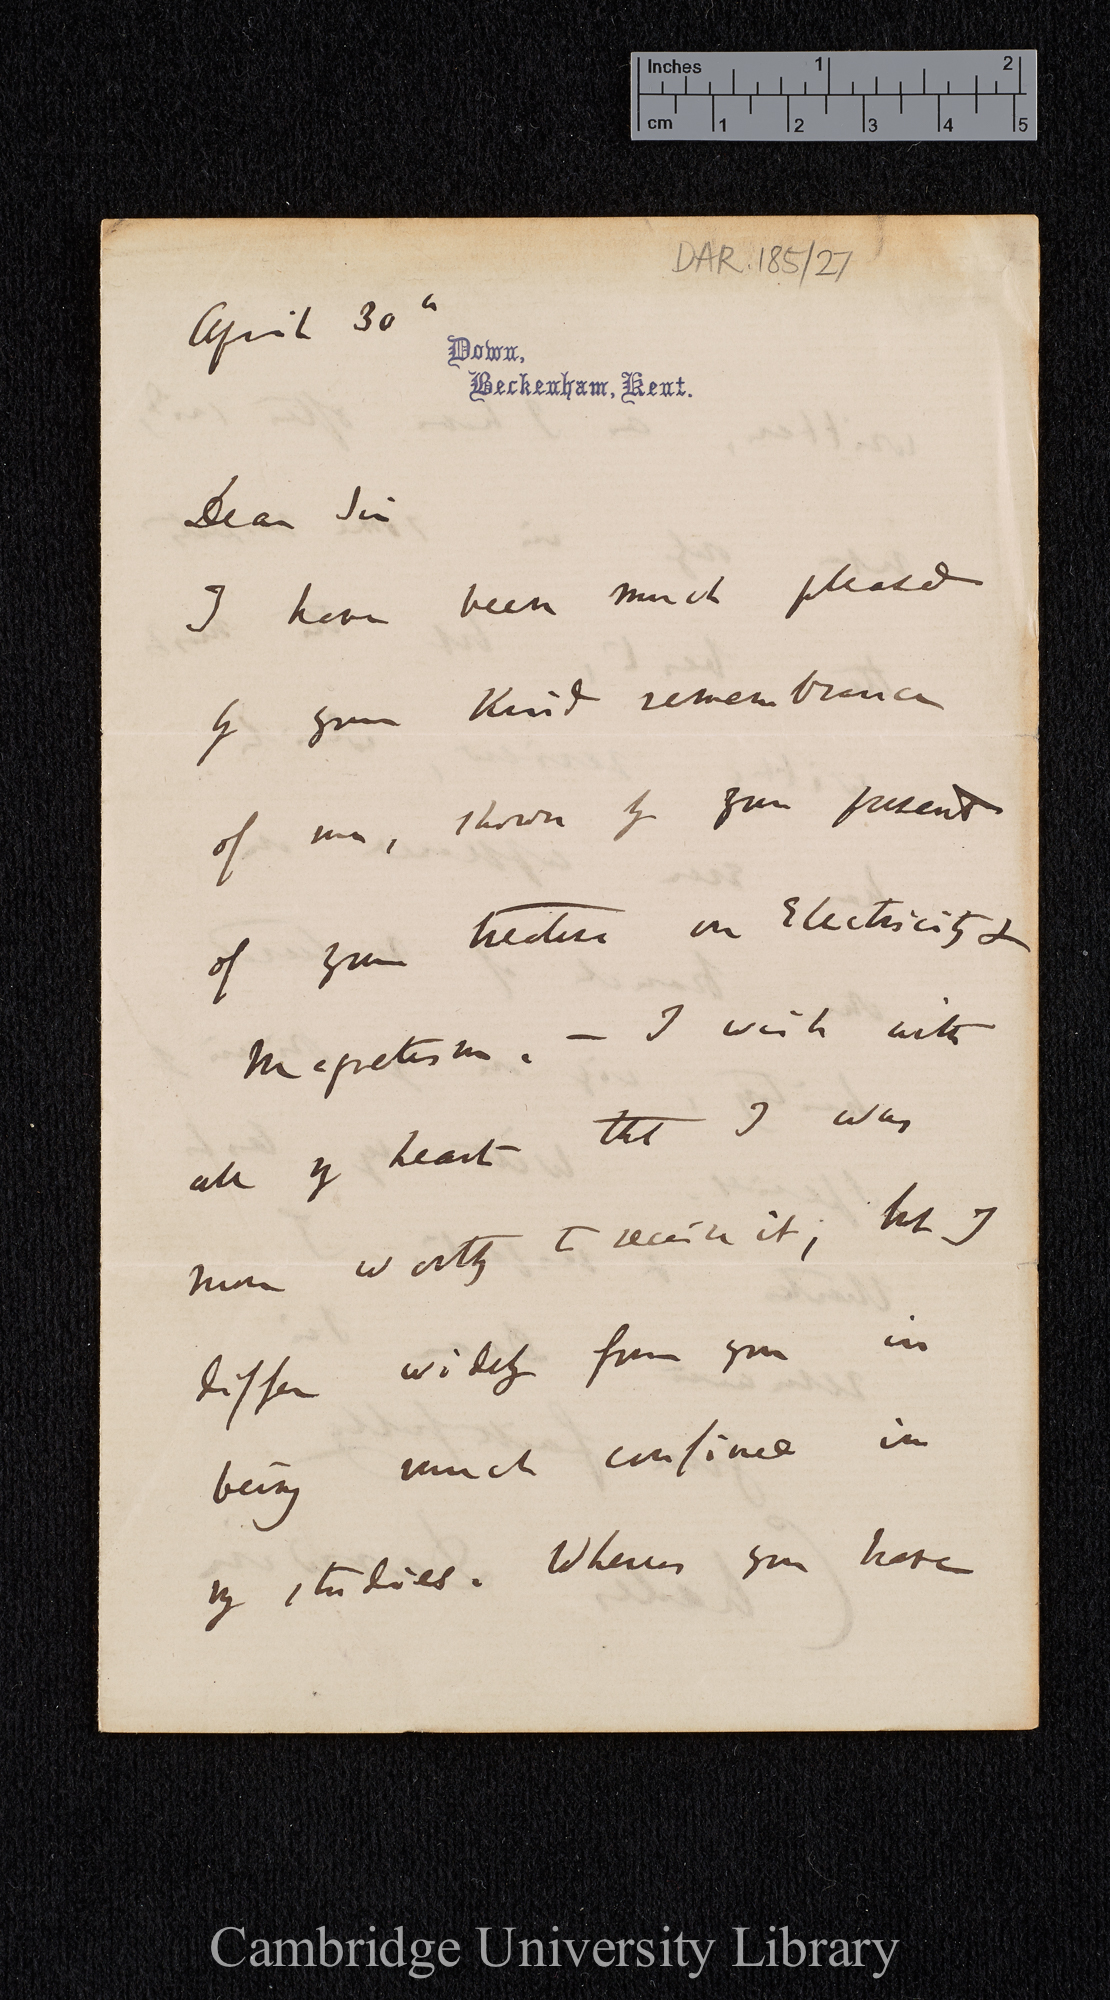 Inches 1 2
cm 1 2 3 4 5
DAR.185/27
April 30th
Down,
Beckenham, Kent.
Dear Sir
I have been much pleased
by your kind remembrance
of me, shown by your present
of your treatise on Electricity &
Magnetism. — I wish with
all my heart that I was
more worthy to receive it; but I
differ widely from you in
being much confined in
my studies. Whereas you have
Cambridge University Library